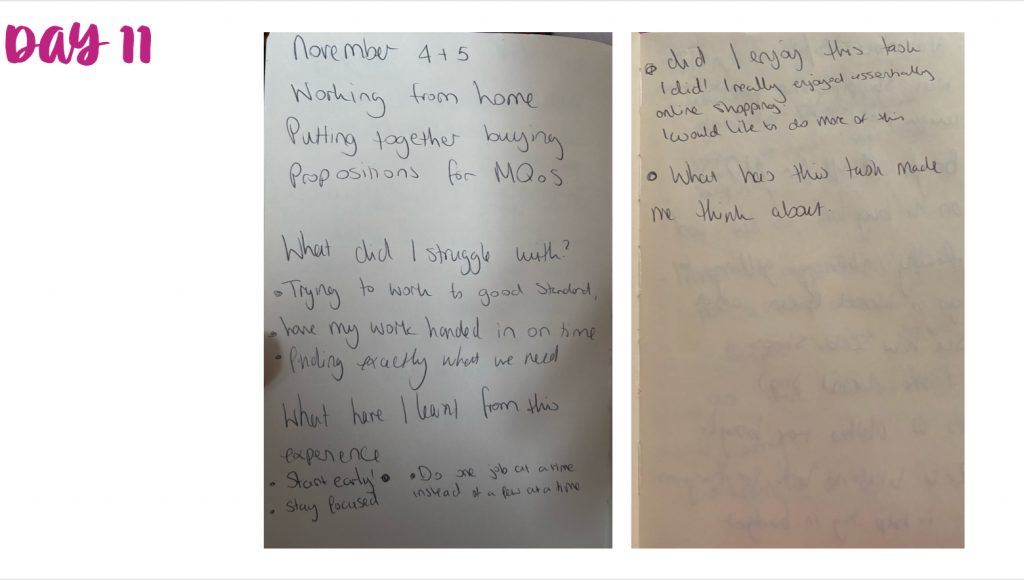 DAY 11
November 4 + 5
Working from home
Putting together buying
Propositions for MQoS
What did I struggle with?
• Trying to work to good standard,
• have my work handed in on time
• finding exactly what we need
What have I learnt from this
experience
• Start early!
• stay focused
• Do one job at a time
instead of a few at a time
• did I enjoy this task
I did! I really enjoyed essentially
online shopping!
I would like to do more of this
• What has this task made
me think about.